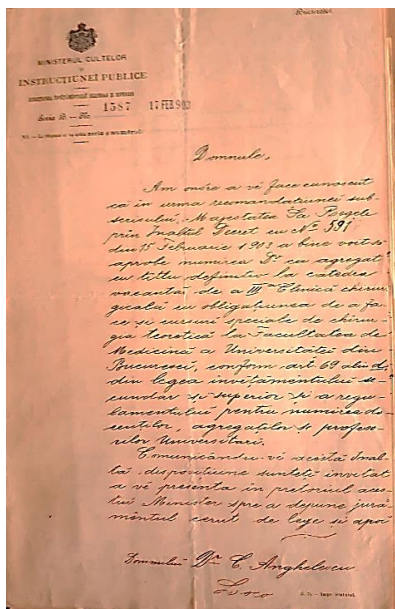 București
MINISTERUL CULTELOR
ȘI
INSTRUCȚIUNEI PUBLICE
Seria B. – No. 1587 17 FEB. 903
NB. – La răspuns se va cita seria și numărul
Domnule,
Am onóre a vĕ face cunoscut
că în urma recomandațiunei sub-
scrisului, Majestatea Sa Regele
prin Înaltul Decret cu No. 591
din 15 Februarie 1903 a bine voit să
aprobe numirea Dv. ca agregat
cu titlu definitiv la catedra
vacantă de a IIIa Clinică chirur-
gicală cu obligațiunea de a fa-
ce și cursuri speciale de chirur-
gia teoretică la Facultatea de
Medicină a Universităței din
București, conform art. 69 alin. d,
din legea învĕțămîntului se-
cundar și superior și a regu-
lamentului pentru numirea do-
cenților, agregaților și profeso-
rilor Universitari.
Comunicându-vi acéstă Înal-
tă dispozițiune sunteți invitat
a vĕ presenta în pretoriul aces-
tui Minister spre a depune jură-
mêntul cerut de lege și apoi
Domnului Dr. C. Anghelescu
Loco